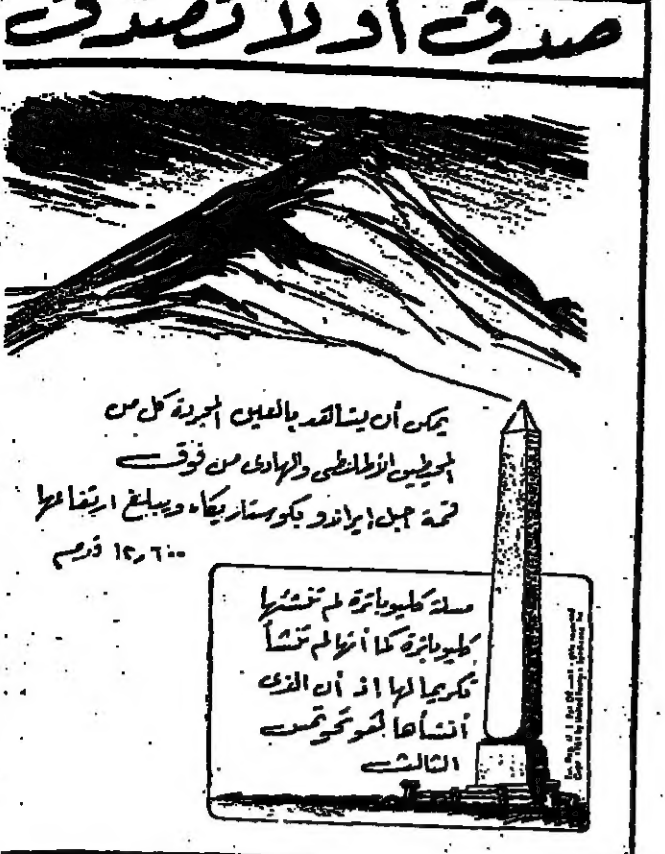 صدق أو لا تصدق
يمكن أن يشاهد بالعين المجردة كل من
المحيطين الأطلنطى والهادى من فوق
قمة جبل ايراندو بكوستاريكا، ويبلغ ارتفاعها
١٢٦٠٠ قدم
مسلة كليوباترة لم تنشئها
كليوباترة كما أنها لم تنشأ
تكريما لها اذ أن الذى
أنشأها هو تحوتمس
الثالث